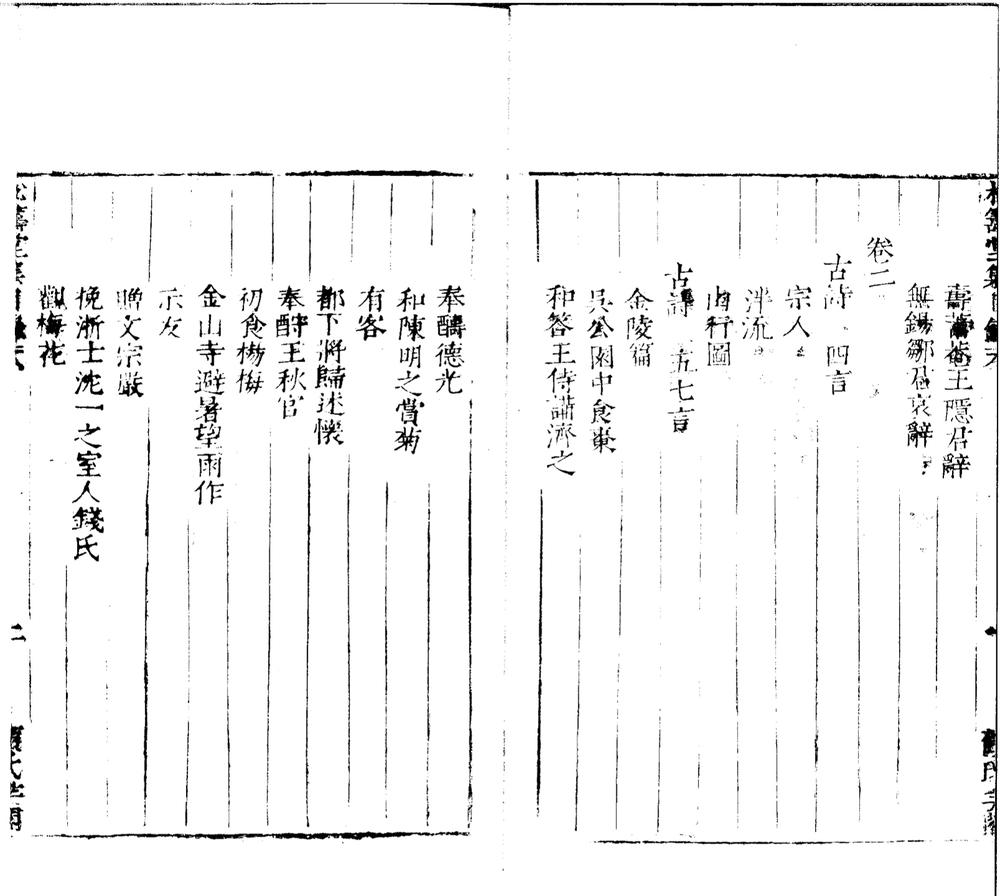 壽菊菴王隱君辭
無錫鄒君哀辭
卷二
古詩 四言
宗人
泮流
山行圖
古詩 五七言
金陵篇
吳公園中食棗
和答王侍講濟之
奉酬德光
和陳明之賞菊
有客
都下將歸述懷
奉酹王秋官
初食楊梅
金山寺避暑望雨作
示友
贈文宗嚴
挽浙士沈一之室人錢氏
觀梅花
二